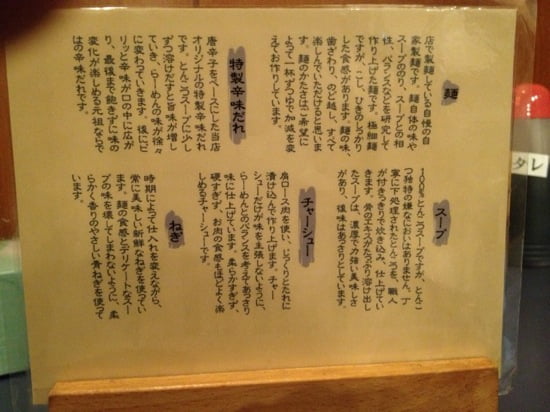 麺
店で製麺している自慢の自
家製麺です。麺自体の味や
スープののり、スープとの相
性、バランスなどを研究して
作り上げた麺です。極細麺
ですが、こし、ひきのしっかり
した食感があります。麺の味、
歯ざわり、のど越し、すべて
楽しんでいただけると思いま
す。麺のかたさはご希望に
よって一杯ずつゆで加減を変
えてお作りしています。
特製辛味だれ
唐辛子をベースにした当店
オリジナルの特製辛味だれ
です。とんこつスープに少し
ずつ溶けだすと旨味が増し
ていき、らーめんの味が徐々
に変わっていきます。後にピ
リッと辛味が口の中に広が
り、最後まで飽きずに味の
変化が楽しめる元祖ならで
はの辛味だれです。
スープ
100%とんこつスープですが、とんこ
つ独特の嫌なにおいはありません。丁
寧に下処理されたとんこつを、職人
が付きっきりで炊き込み、仕上げてい
きます。骨のエキスがたっぷり溶け出し
たスープは、濃厚で力強い美味しさ
があり、後味はあっさりとしています。
チャーシュー
肩ロース肉を使い、じっくりとたれに
漬け込んで作り上げます。チャー
シューだけが味を主張しないように、
らーめんとのバランスを考えてあっさり
味に仕上げています。柔らかすぎず、
硬すぎず、お肉の食感をほどよく楽
しめるチャーシューです。
ねぎ
時期によって仕入れを変えながら、
常に美味しい新鮮なねぎを使ってい
ます。麺の食感とデリケートなスー
プの味を壊してしまわないように、柔
らかく香りのやさしい青ねぎを使って
います。
タレ